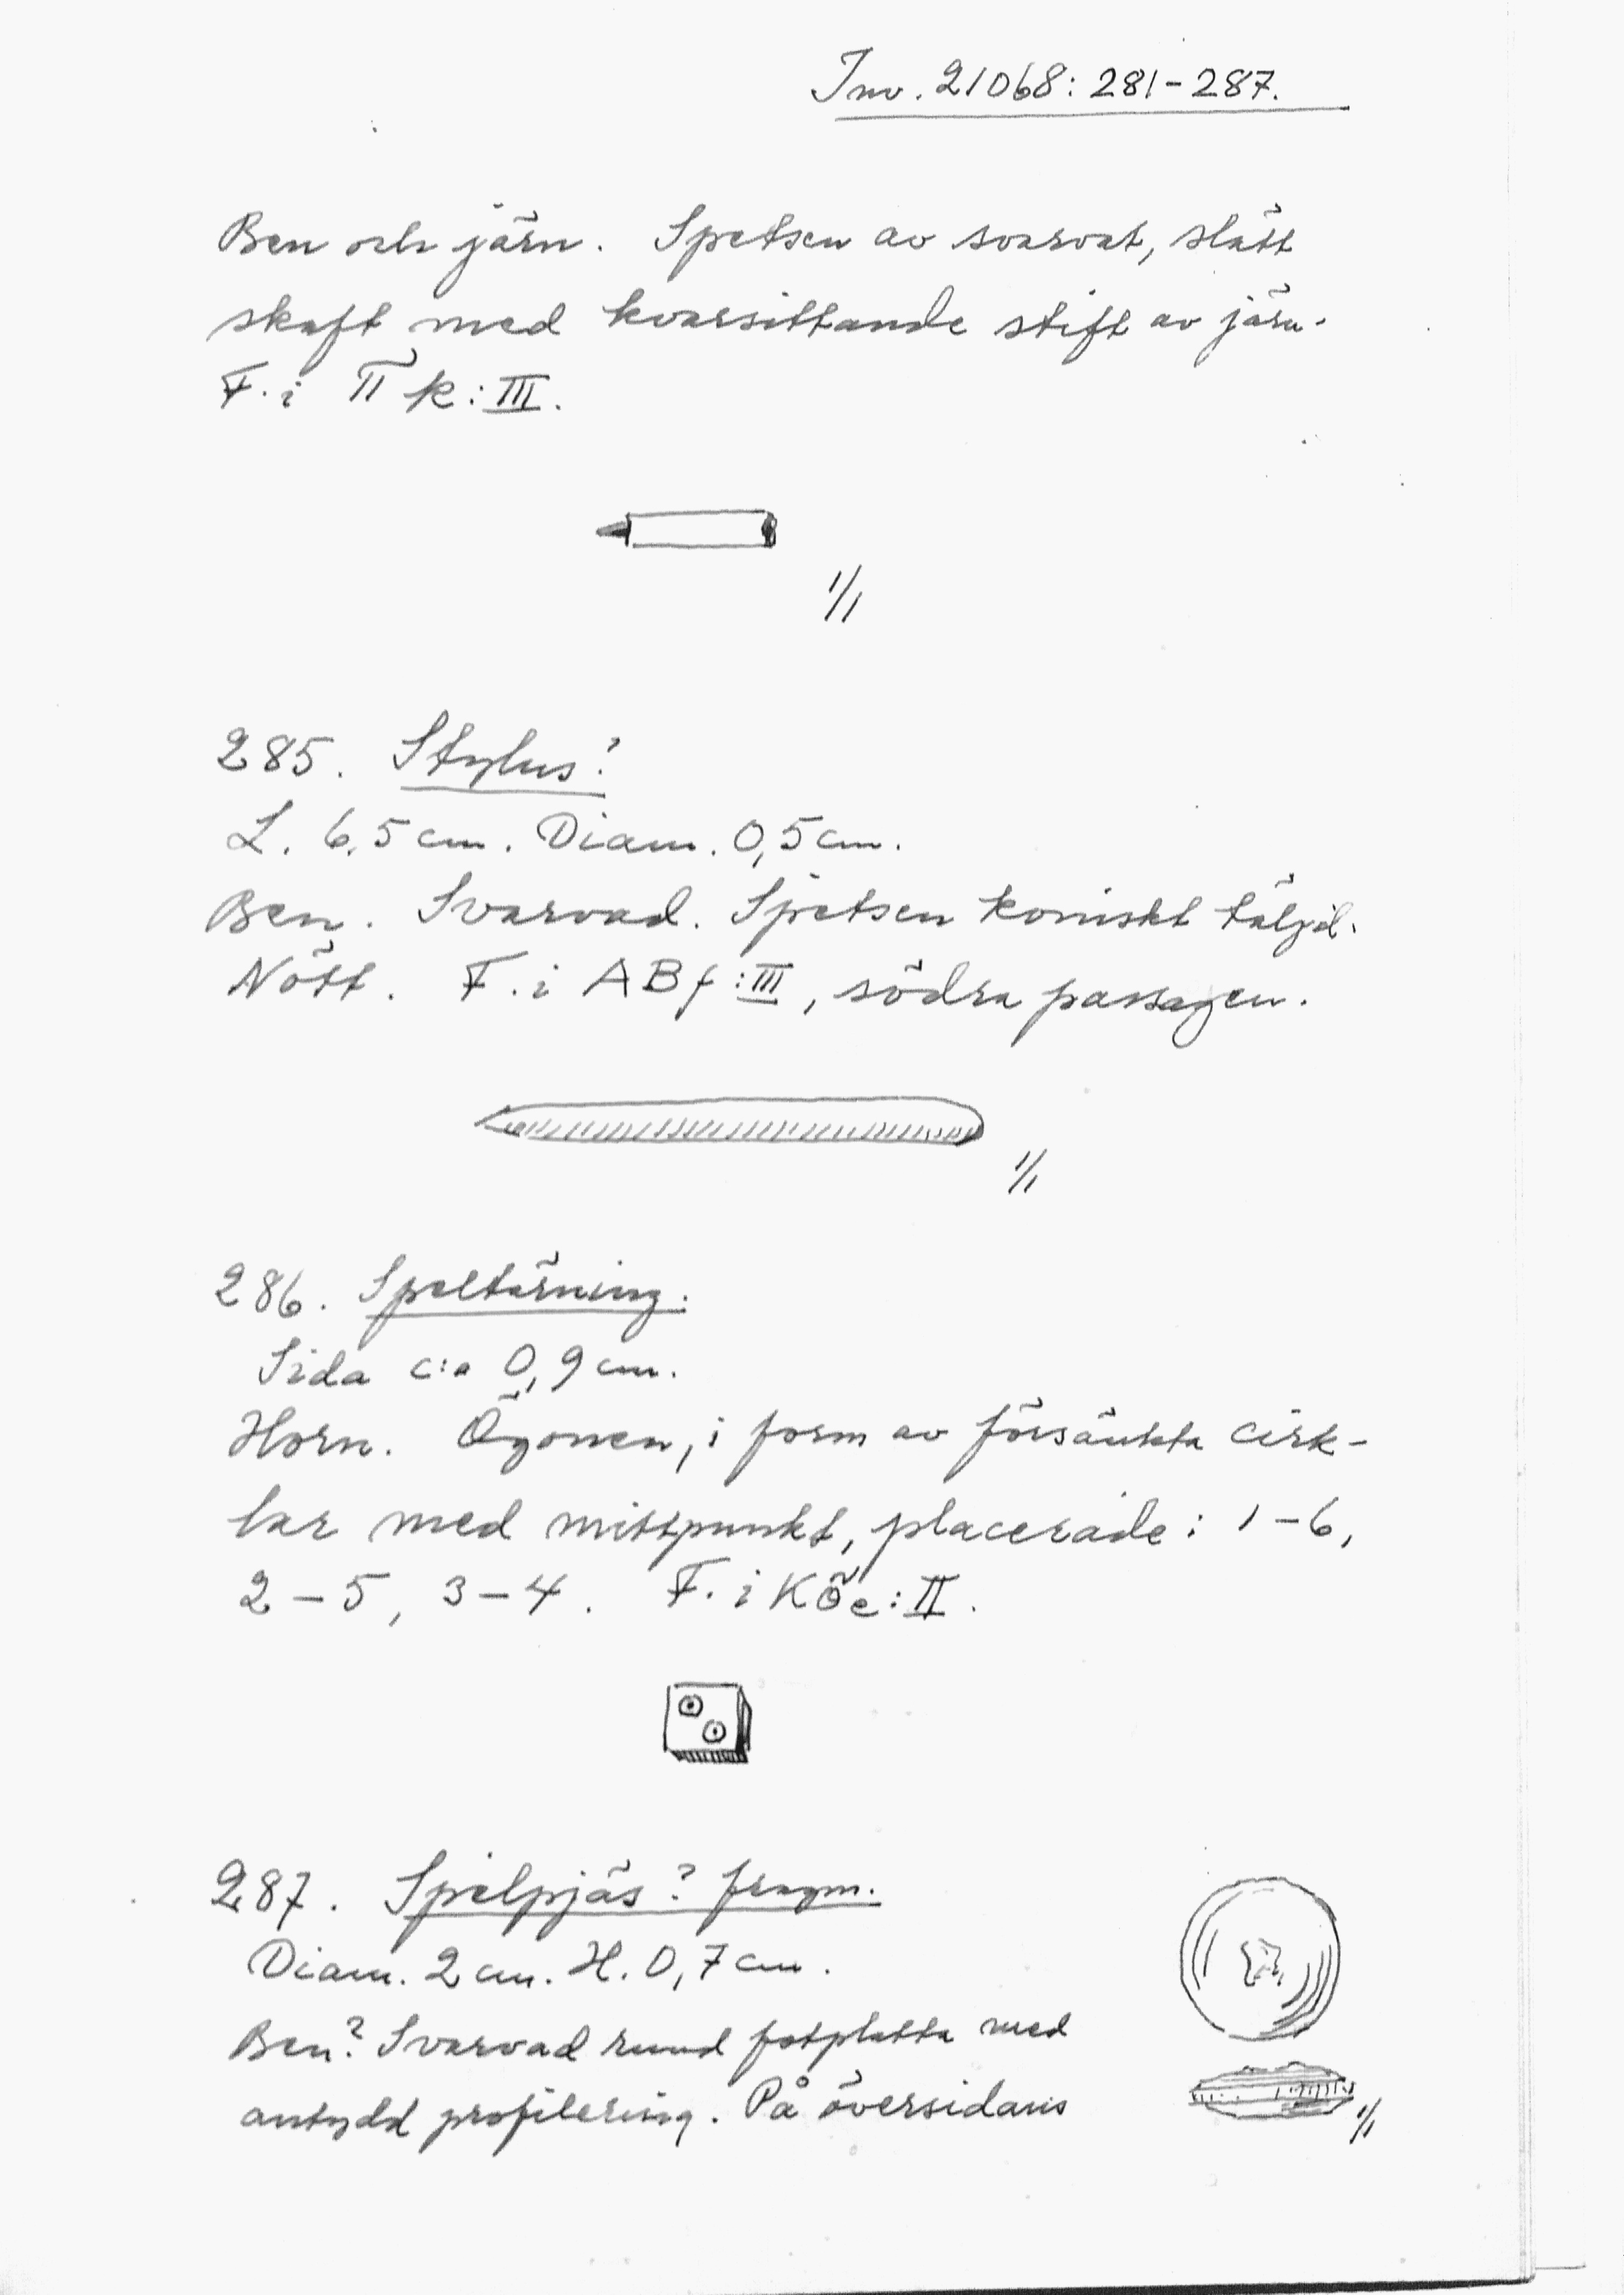 Inv. 21068: 281-287.
Ben och järn. Spetsen av svarvat, slätt
skaft med kvarsittande stift av järn.
F. i Ti k: III.
1/1
285. Stylus?
L. 6,5 cm. Diam. 0,5 cm.
Ben. Svarvad. Spetsen koniskt täljd.
Nött. F. i ABf: III, södra passagen.
1/1
286. Speltärning.
Sida c:a 0,9 cm.
Horn. Ögonen, i form av försänkta cirk-
lar med mittpunkt, placerade: 1-6,
2-5, 3-4. F. i KÖe: II.
287. Spelpjäs? fragm.
Diam. 2 cm. H. 0,7 cm.
Ben? Svarvad rund fotplatta med
antydd profilering. På översidans
1/1